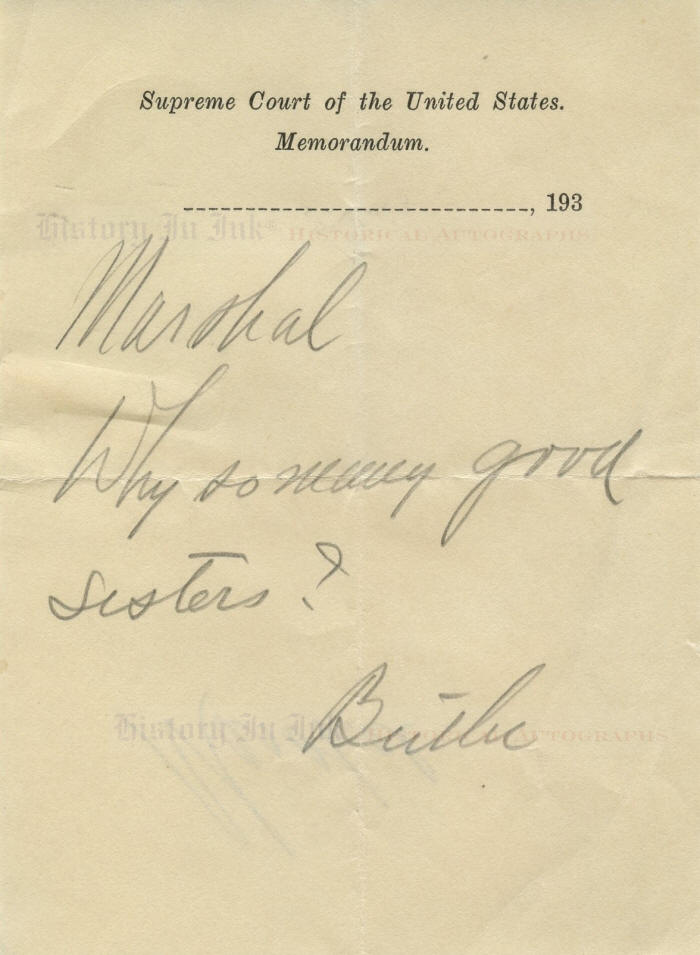 Supreme Court of the United States.
Memorandum.
------------------------------, 193
History In Ink® HISTORICAL AUTOGRAPHS
Marshal
Why so many good
sisters?
Butler
History In Ink® HISTORICAL AUTOGRAPHS